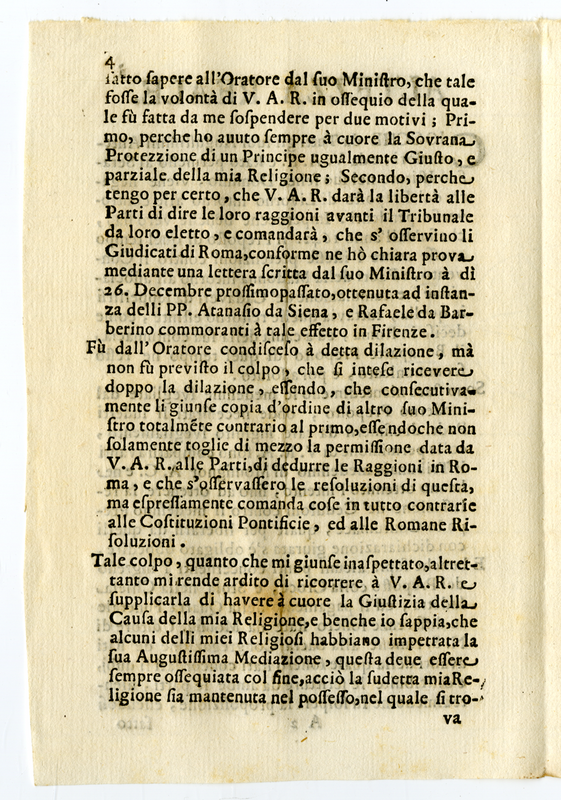 4
fatto ſapere all'Oratore dal ſuo Miniſtro, che tale
foſſe la volontà di V. A. R. in oſſequio della qua-
le fù fatta da me ſoſpendere per due motivi; Pri-
mo, perche ho auuto ſempre à cuore la Sovrana
Protezzione di un Principe ugualmente Giuſto, e
parziale della mia Religione; Secondo, perche
tengo per certo, che V. A. R. darà la libertà alle
Parti di dire le loro raggioni avanti il Tribunale
da loro eletto, e comandarà, che s' oſſervino li
Giudicati di Roma,conforme ne hò chiara prova
mediante una lettera ſcritta dal ſuo Miniſtro à dì
26. Decembre proſſimopaſſato,ottenuta ad inſtan-
za delli PP. Atanaſio da Siena, e Rafaele da Bar-
berino commoranti à tale effetto in Firenze.
Fù dall' Oratore condiſceſo à detta dilazione, mà
non fù previſto il colpo, che ſi inteſe ricevere
doppo la dilazione, eſſendo, che conſecutiva-
mente li giunſe copia d'ordine di altro ſuo Mini-
ſtro totalmẽte contrario al primo,eſſendoche non
ſolamente toglie di mezzo la permiſſione data da
V. A. R. alle Parti,di dedurre le Raggioni in Ro-
ma, e che s'oſſervaſſero le reſoluzioni di queſta,
ma eſpreſſamente comanda coſe in tutto contrarie
alle Coſtituzioni Pontificie, ed alle Romane Ri-
ſoluzioni.
Tale colpo, quanto che mi giunſe inaſpettato,altret-
tanto mi rende ardito di ricorrere à V. A. R. e
ſupplicarla di havere à cuore la Giuſtizia della
Cauſa della mia Religione,e benche io ſappia,che
alcuni delli miei Religioſi habbiano impetrata la
ſua Auguſtiſſima Mediazione, queſta deue eſſere
ſempre oſſequiata col fine,acciò la ſudetta mia Re-
ligione ſia mantenuta nel poſſeſſo,nel quale ſi tro-
va